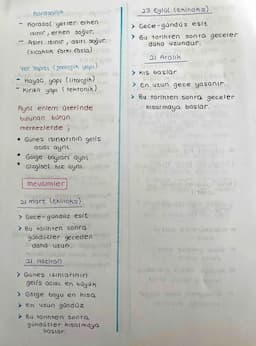 Karasallık
- Karasal yerler erken
ısınır, erken soğur.
- Aşırı ısınır, aşırı soğur
(sıcaklık farkı fazla)
Yer Yapısı (jeolojik yapı)
- Kayaç yapı (litolojik)
- Kırıklı yapı (tektonik)
Aynı enlem üzerinde
bulunan bütün
merkezlerde;
Güneş ışınlarının geliş
açısı aynı.
Gölge boyları aynı
Çizgisel hız aynı
mevsimler
21 mart (ekinoks)
> Gece-gündüz eşit
> Bu tarihten sonra
gündüzler geceden
daha uzun.
21 Haziran
> Güneş ışınlarının
geliş açısı en büyük
> Gölge boyu en kısa
> En uzun gündüz
> Bu tarihten sonra
gündüzler kısalmaya
başlar.
23 Eylül (ekinoks)
> Gece-gündüz eşit
> Bu tarihten sonra geceler
daha uzundur.
21 Aralık
> Kış başlar.
> En uzun gece yaşanır.
> Bu tarihten sonra geceler
kısalmaya başlar.